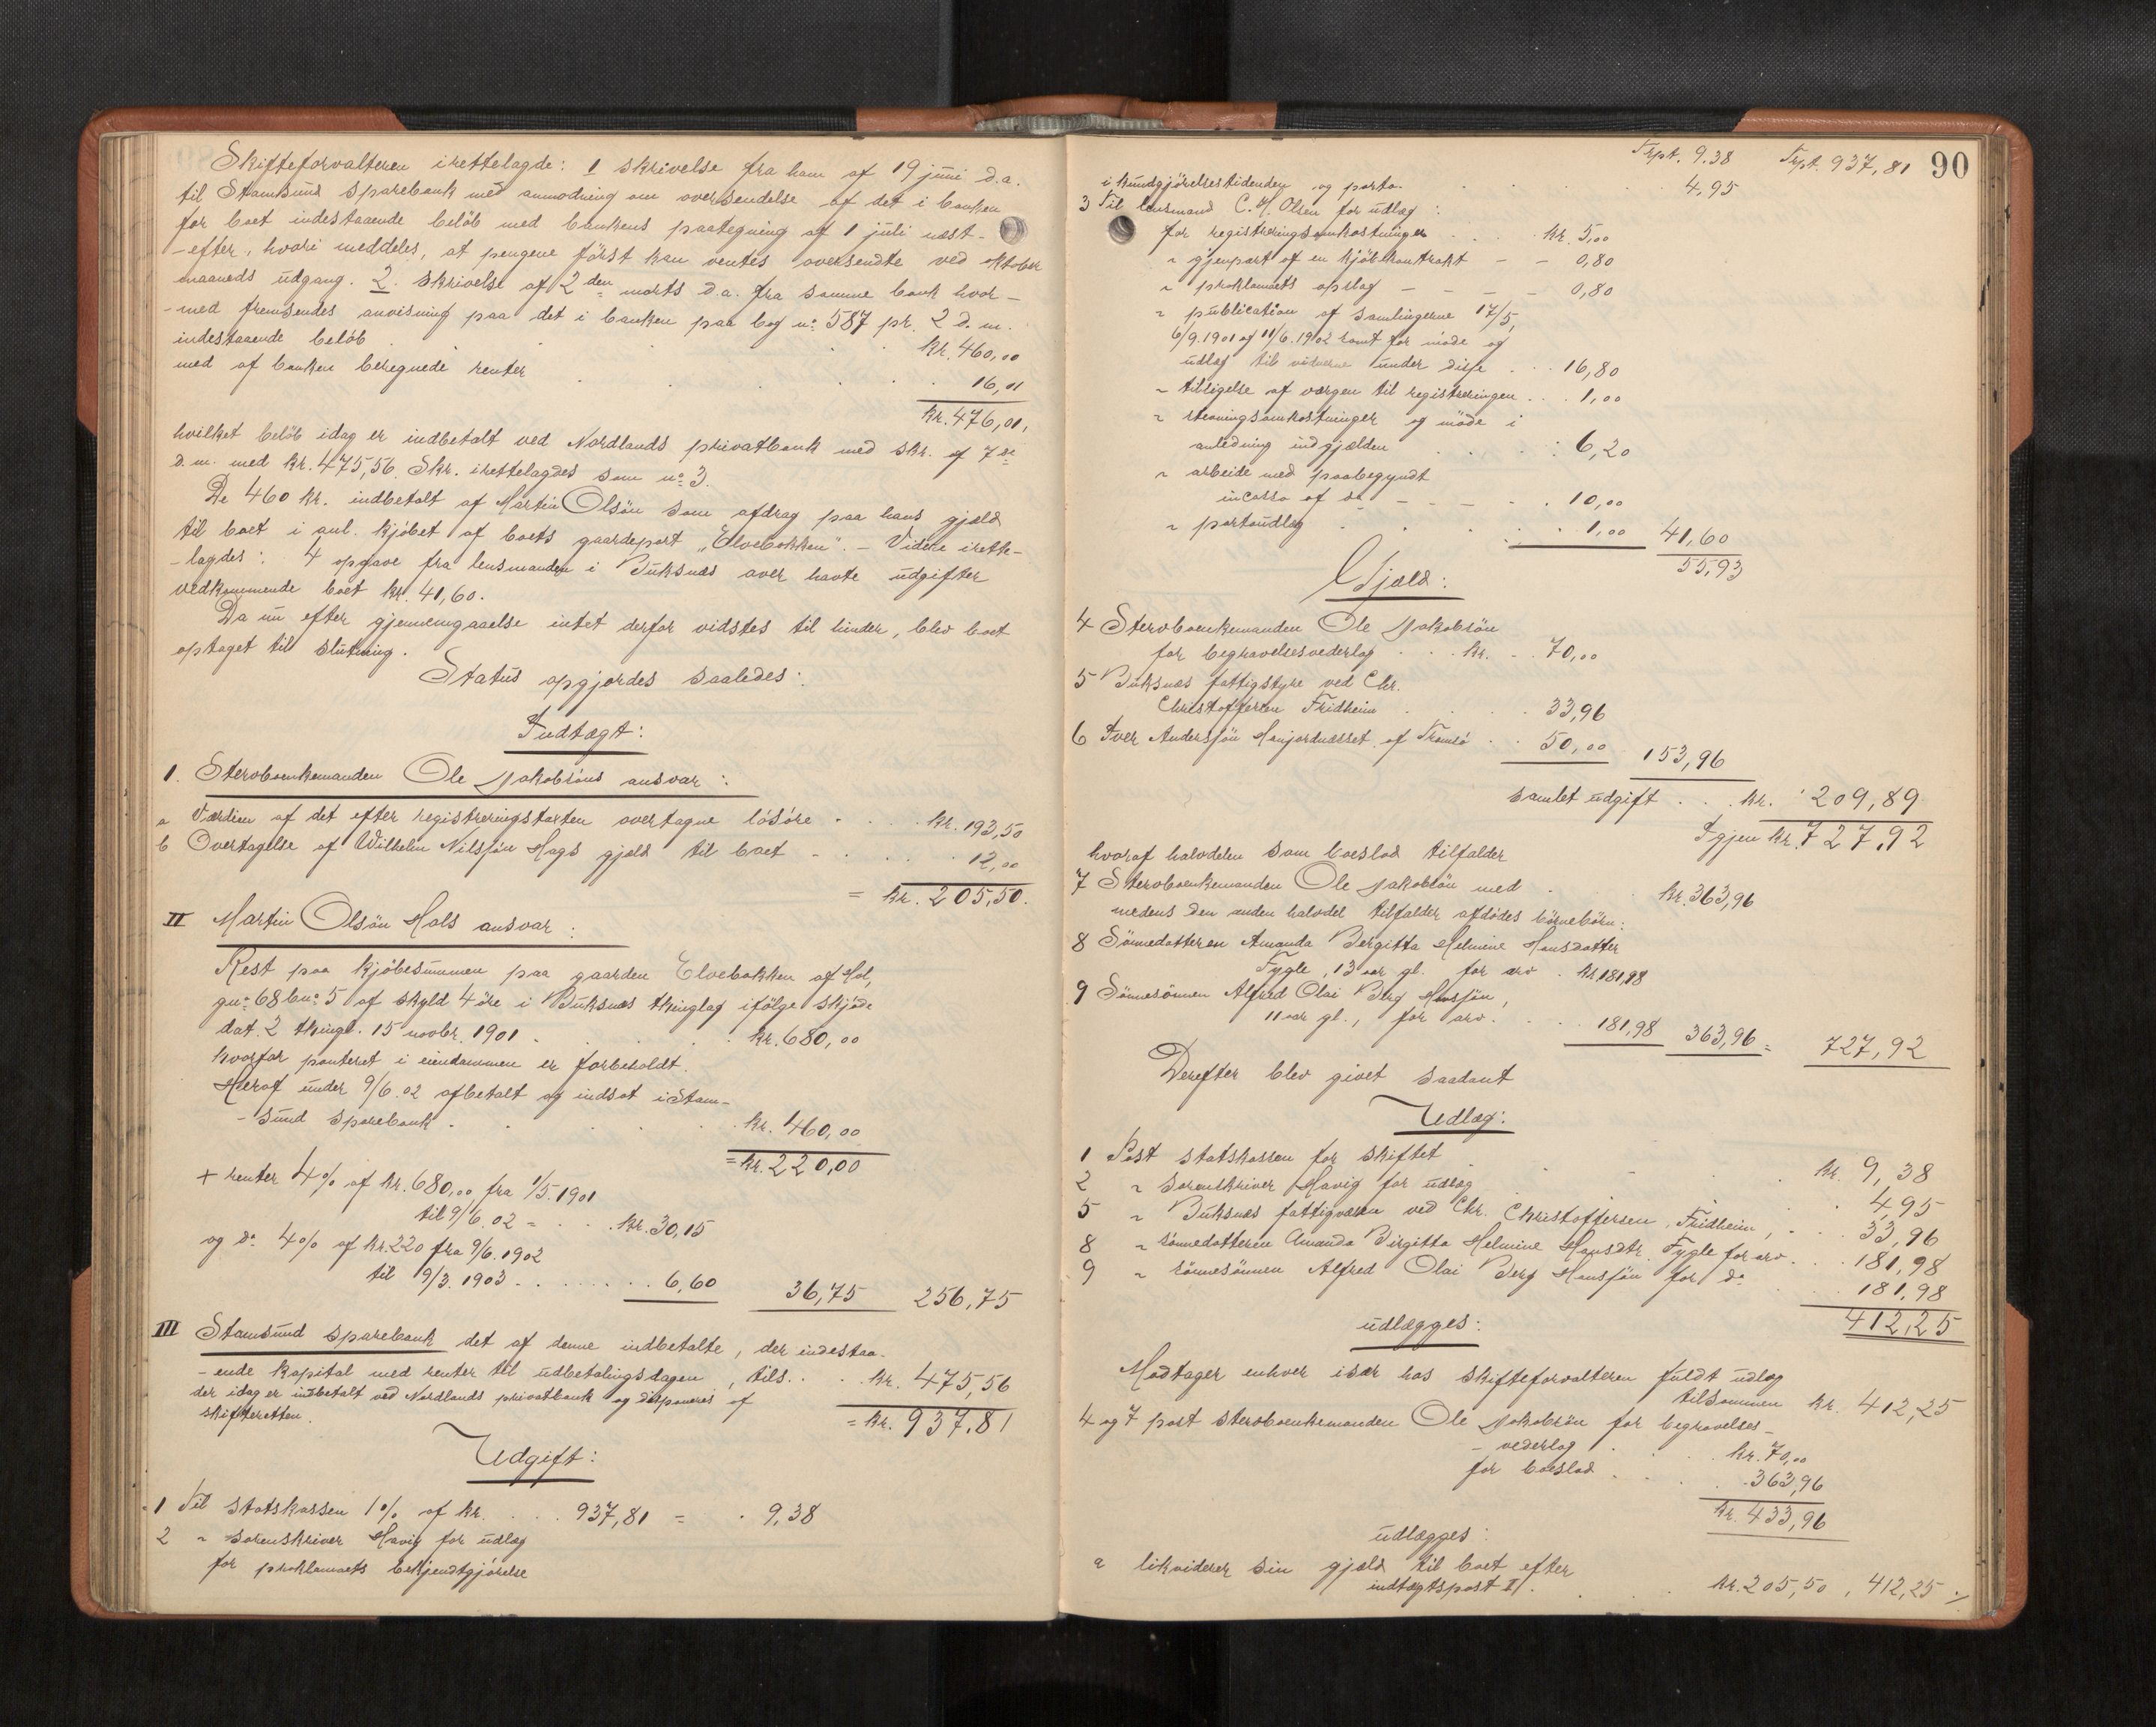 Skifteforvalteren irettelagde: 1 skrivelse fra ham af 19 juni d.a.
til Stamsund sparebank med anmodning om oversendelse af det i banken
for boet indestaaende beløb med bankens paategning af 1 juli næst-
-efter, hvori meddeles, at pengene først kan ventes oversendte ved oktober
maaneds udgang. 2. skrivelse af 2den marts d.a. fra samme bank hvor-
-med fremsendes anvisning paa det i banken paa bog no 587 pr. 2 d.m.
indestaaende beløb . . . kr. 460,00
med af banken beregnede renter . . . 16,01
kr. 476,01,
hvilket beløb idag er indbetalt ved Nordlands privatbank med skr. af 7de
d.m. med kr. 475,56. Skr. irettelagdes som no 3.
De 460 kr. indbetalt af Martin Olsøn som afdrag paa hans gjæld
til boet i anl. kjøbet af boets gaardepart „Elvebakken". - Videre irette-
-lagdes: 4 opgave fra lensmanden i Buksnæs over havte udgifter
vedkommende boet kr. 41,60.
Da nu efter gjennemgaaelse intet derfor vidstes til hinder, blev boet
optaget til slutning.
Status opgjordes saaledes:
Indtægt:
1. Stervboenkemanden Ole Jakobsøns ansvar:
a Værdien af det efter registreringstaxten overtagne løsøre . . . kr. 193,50
b Overtagelse af Wilhelm Nilssøn Hags gjæld til boet . . . 12,00
= kr. 205,50.
II Martin Olsøn Hals ansvar:
Rest paa kjøbesummen paa gaarden Elvebakken af Hol,
gno 68 bno 5 af skyld 4 øre i Buksnæs thinglag ifølge skjøde
dat. 2 thingl. 15 novbr. 1901 . . . kr. 680,00
hvorfor panteret i eiendommen er forbeholdt.
Heraf under 9/6.02 afbetalt og indsat i Stam-
-sund sparebank . . . kr. 460,00
= kr. 220,00
+ renter 4% af kr. 680,00 fra 1/5.1901
til 9/6.02 = . . . kr. 30,15
og do 4% af kr. 220 fra 9/6.1902
til 9/3.1903 . . . 6,60 36,75 256,75
III Stamsund sparebank det af denne indbetalte, der indestaa-
-ende kapital med renter til udbetalingsdagen, tils. . . kr. 475,56
der idag er indbetalt ved Nordlands privatbank og disponeres af
skifteretten.
= kr. 937,81
Udgift:
1 Til statskassen 1% af kr. . . . 937,81 = . 9,38
2 " sorenskriver Havig for udlæg
for proklamaets bekjendtgjørelse
Trpt. 9.38 Trpt. 937,81 90
i kundgjørelsestidenden og porto . . . 4,95
3 Til lensmand C. H. Olsen for udlæg:
for registreringsomkostninger . . . kr. 5,00
" gjenpart af en kjøbekontrakt - - 0,80
" proklamaets opslag - - - - 0,80
" publication af samlingerne 17/5,
6/9.1901 og 11/6.1902 samt for møde og
udlæg til vidnerne under disse . . . 16,80
" tilsigelse af værgen til registreringen . . . 1,00
" stevningsomkostninger og møde i
anledning indgjælden . . . 6,20
" arbeide med paabegyndt
incasso af do - - - . . 10,00
" portoudlæg . . . 1,00 41,60
55,93
Gjæld:
4 Stervboenkemanden Ole Jakobsøn
for begravelsesvederlag . . . kr. . 70,00
5 Buksnæs fattigstyre ved Chr.
Christoffersen Fridheim . . . 33,96
6 Iver Anderssøn af Tromsø . . 50,00 153,96
samlet udgift . . . kr. 209,89
Igjen kr. 727,92
hvoraf halvdelen som boeslod tilfalder
7 Stervboenkemanden Ole Jakobsøn med . kr. 363,96
medens den anden halvdel tilfalder afdødes børnebørn:
8 Sønnedatteren Amanda Bergitta Helmine Hansdatter
Fygle, 13 aar gl. for arv . kr. 181,98
9 Sønnesønnen Alfred Olai Berg Hanssøn,
11 aar gl., for arv. . . 181,98 363,96 = 727,92
Derefter blev givet saadant
Udlæg:
1 Post statskassen for skiftet . . . kr. 9,38
2 " sorenskriver Havig for udlæg . . . 4,95
5 " Buksnæs fattigvæsen ved Chr. Christoffersen, Fridheim, . . . 33,96
8 " sønnedatteren Amanda Birgitta Helmine Hansdtr. Fygle for arv . . . 181,98
9 " sønnesønnen Alfred Olai Berg Hanssøn for do . . . 181,98
412,25
udlægges:
Modtager enhver især hos skifteforvalteren fuldt udlæg
tilsammen kr. 412,25
4 og 7 post stervboenkemanden Ole Jakobsøn for begravelses-
-vederlag . . . kr. 70,00
for boeslod . . . 363,96
kr. 433,96
udlægges:
a likviderer sin gjæld til boet efter
indtægtspost I/. . . . kr. 205,50, 412,25 ./.